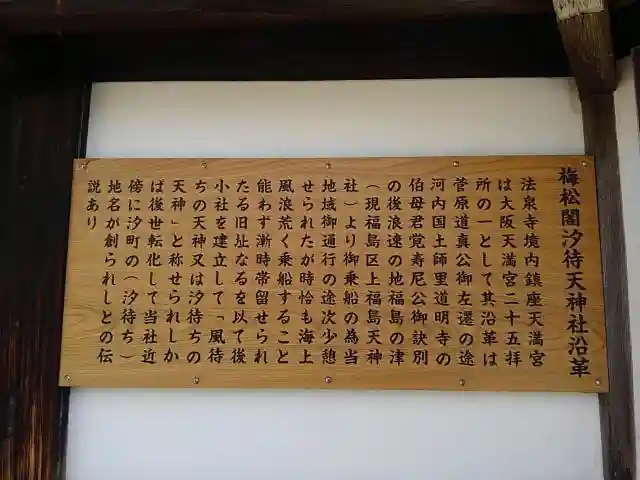 梅松閣汐待天神社沿革
法泉寺境内鎮座天満宮
は大阪天満宮二十五拝
所の一として其沿革は
菅原道真公御左遷の途
河内国土師里道明寺の
伯母君覚寿尼公御訣別
の後浪速の地福島の津
(現福島区上福島天神
社)より御乗船の為当
地域御通行の途次少憩
せられたが時恰も海上
風浪荒く乗船すること
能わず漸時滞留せられ
たる旧址なるを以て後
小社を建立して「風待
ちの天神又は汐待ちの
天神」と称せられしか
ば後世転化して当社近
傍に汐町の(汐待ち)
地名が創られしとの伝
説あり